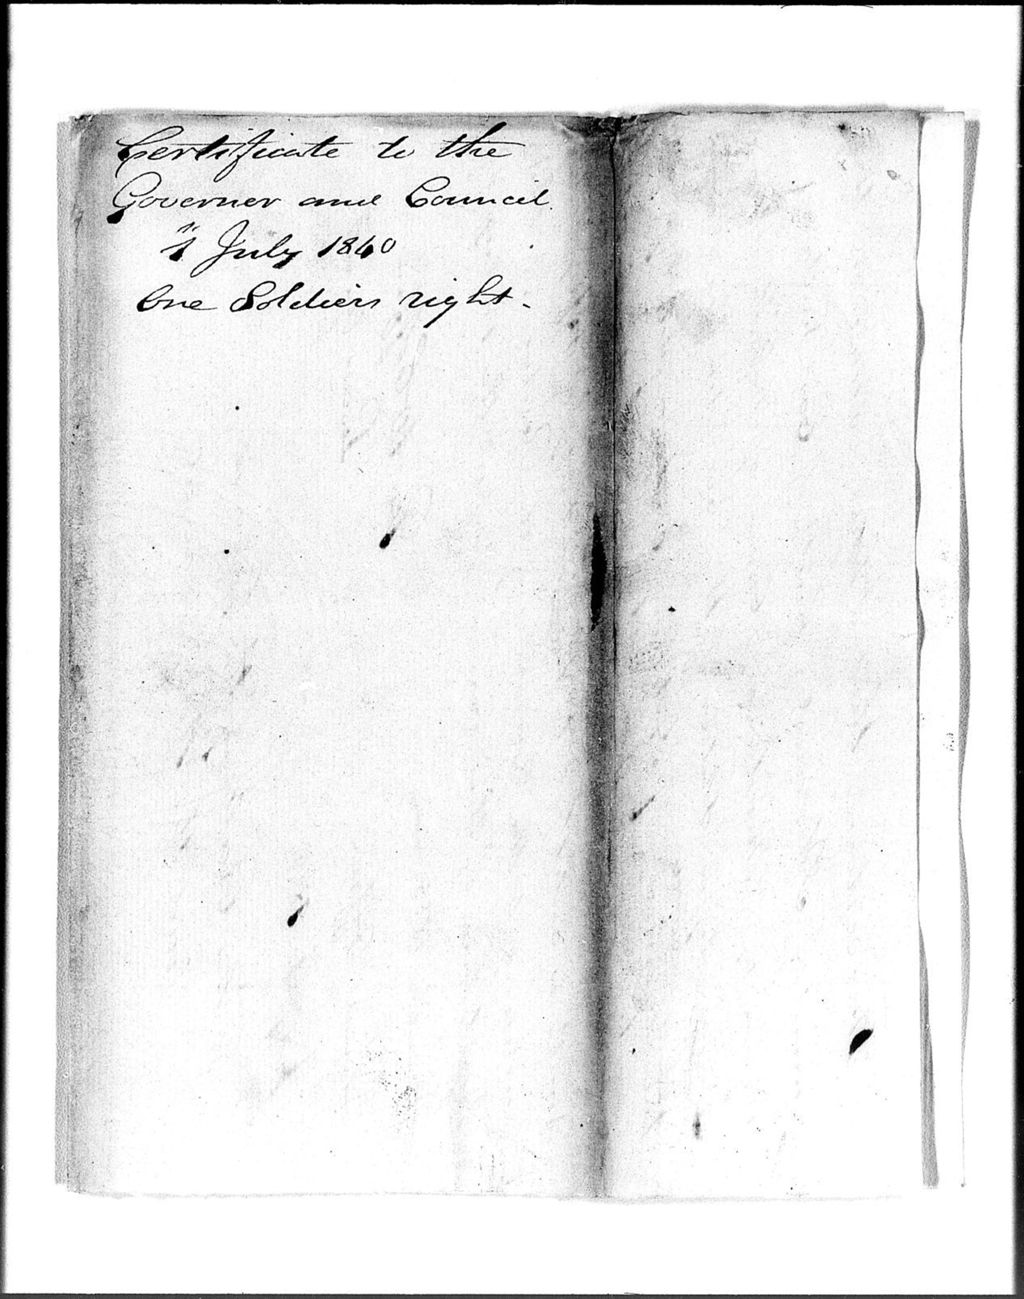 Certificate to the
Governer and Council.
1" July 1840
One Soldiers right -